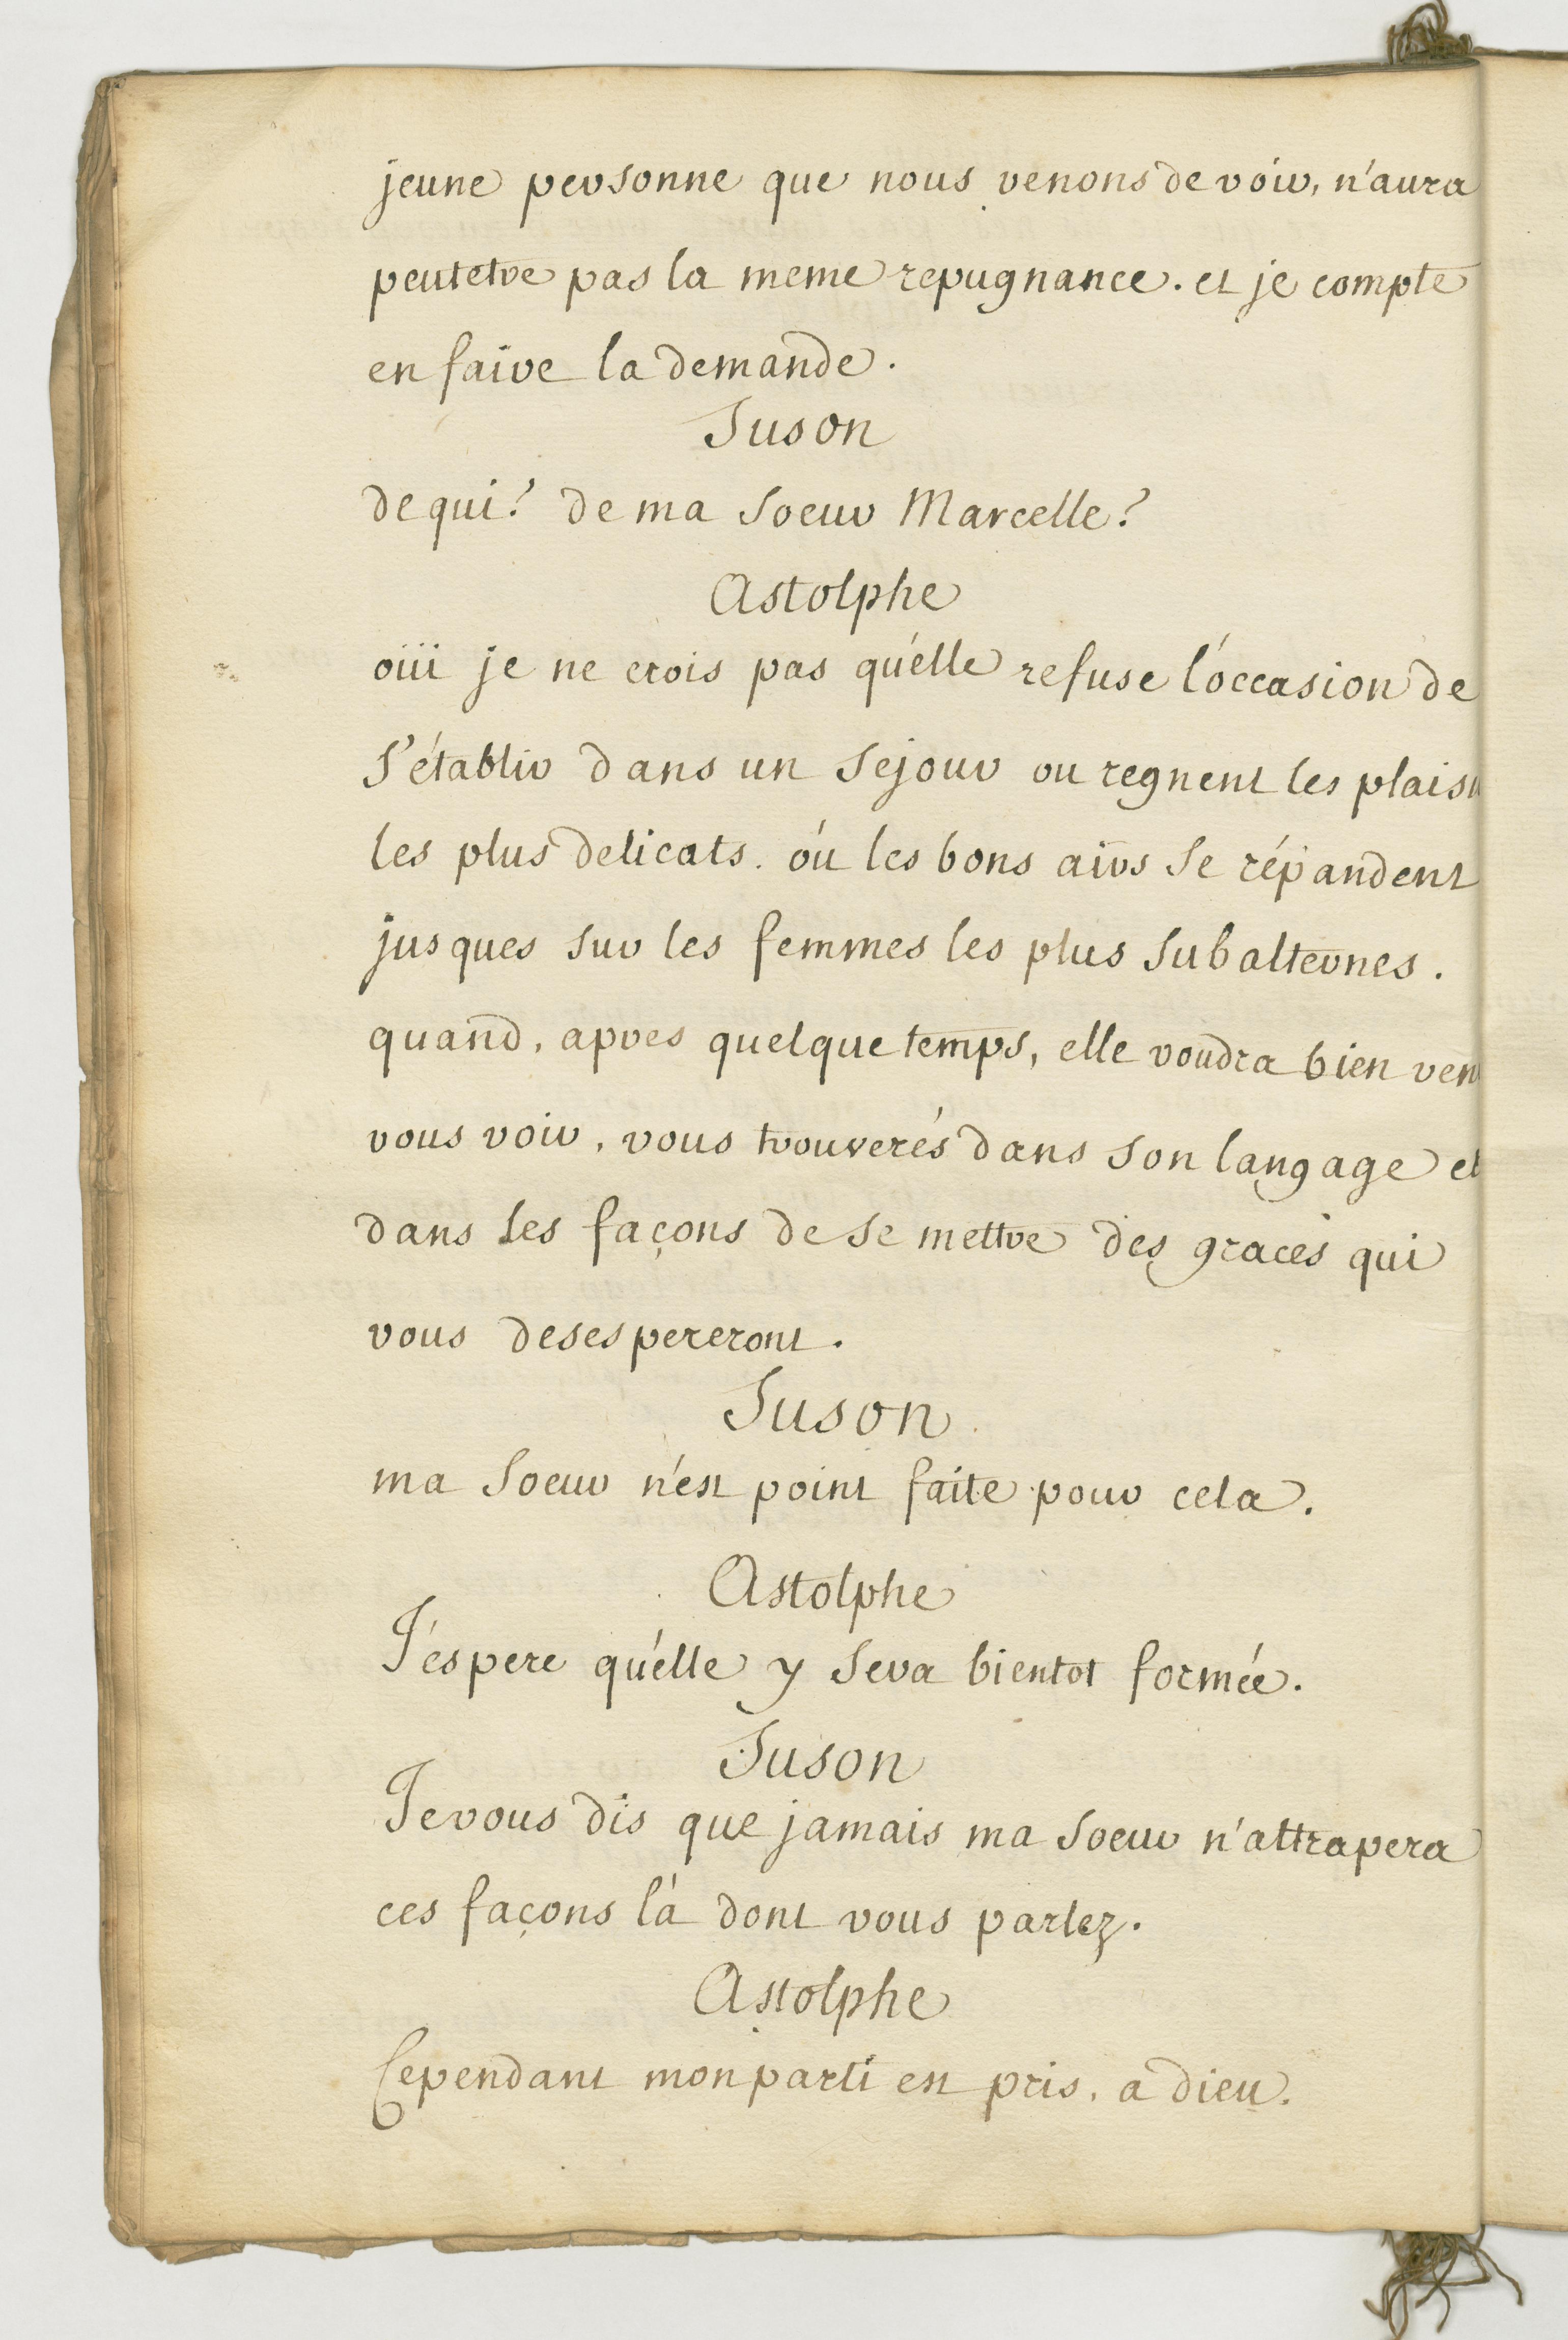 jeune personne que nous venons de voir, n'aura
peutetre pas la meme repugnance. et je compte
en faire la demande.
Suson
de qui? de ma Soeur Marcelle?
Astolphe
oüi je ne crois pas qu'elle refuse l'occasion de
S'établir dans un Sejour ou regnent les plaisi
les plus delicats. où les bons airs Se répandent
jusques Sur les femmes les plus Subalternes.
quand, apres quelque temps, elle voudra bien ven
vous voir, vous trouverés dans Son langage et
dans Ses façons de Se mettre des graces qui
vous desespereront.
Suson
ma Soeur n'est point faite pour cela.
Astolphe
J'espere qu'elle y Sera bientot formée.
Suson
Je vous dis que jamais ma Soeur n'attrapera
ces façons là dont vous parlez.
Astolphe
Cependant mon parti est pris. a dieu.